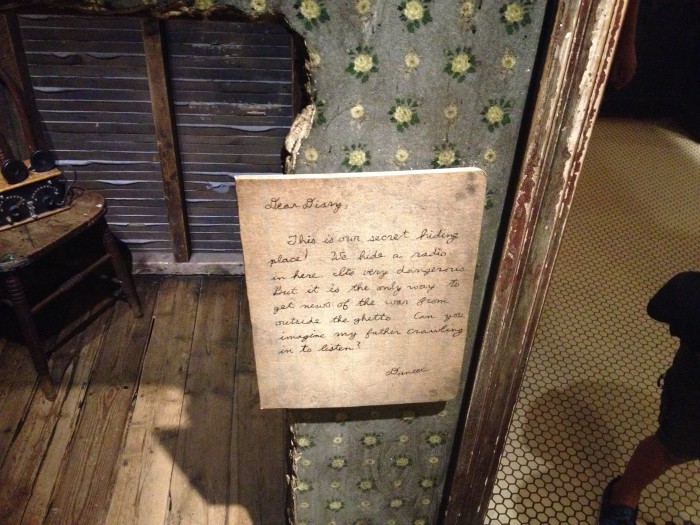 Dear Diary,
This is our secret hiding
place! We hide a radio
in here. Its very dangerous.
But it is the only way to
get news of the war from
outside the ghetto. Can you
imagine my father crawling
in to listen?
Daniel